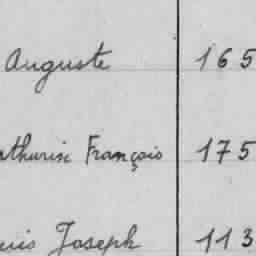 Auguste 165
athurin François 175
uis Joseph 113